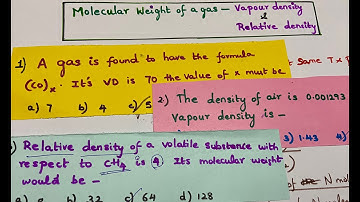 Molecular Weight of a gas – Vapour density
&
Relative density
1) A gas is found to have the formula
(CO)x. It's VD is 70 the value of x must be
a) 7 b) 4 c) 5
Same T x P
2) The density of air is 0.001293
Vapour density is –
3) 1.43 4)
Relative density of a volatile substance with
respect to CH4 is 4 Its molecular weight
would be –
b) 32 c) 64 d) 128